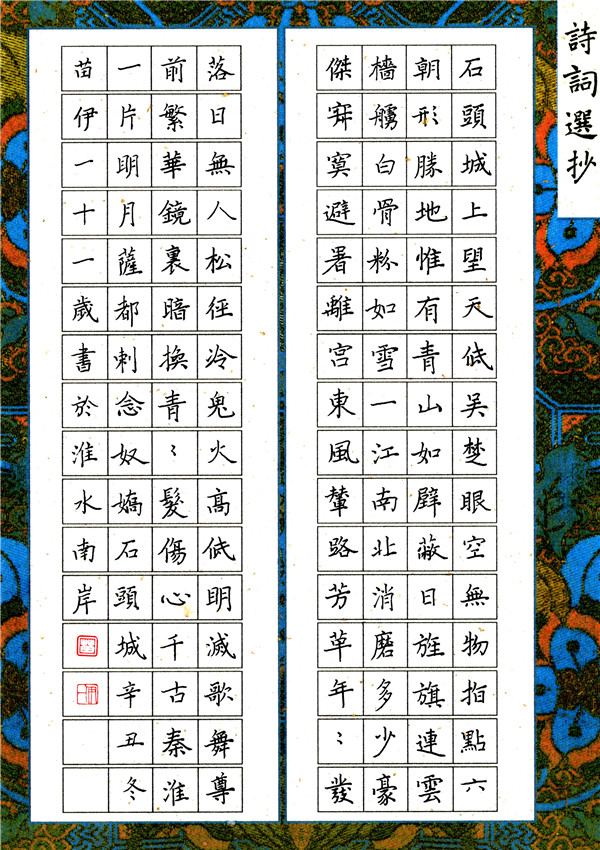 詩詞選抄
石頭城上望天低吳楚眼空無物指點六
朝形勝地惟有青山如壁蔽日旌旗連雲
檣艣白骨粉如雪一江南北消磨多少豪
傑寂寞避暑離宮東風輦路芳草年〻發
落日無人松徑冷鬼火高低明滅歌舞尊
前繁華鏡裏暗換青〻髮傷心千古秦淮
一片明月薩都剌念奴嬌石頭城辛丑冬
苗伊一十一歲書於淮水南岸